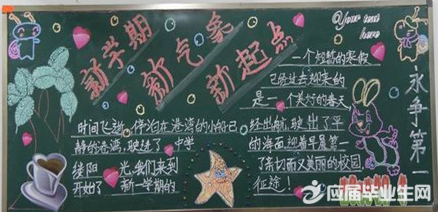 新学期
新气象
新起点
Your text
here
一个短暂的寒假
已经过去迎来的
是一个美好的春天
永争第一
时间飞逝,停泊在港湾的小船已
经出航,驶出了平
静的港湾,驶进了
的海面,迎着早晨第一
缕阳光,我们来到
了亲切而又美丽的校园
开始了新一学期的
征途!
应届毕业生网